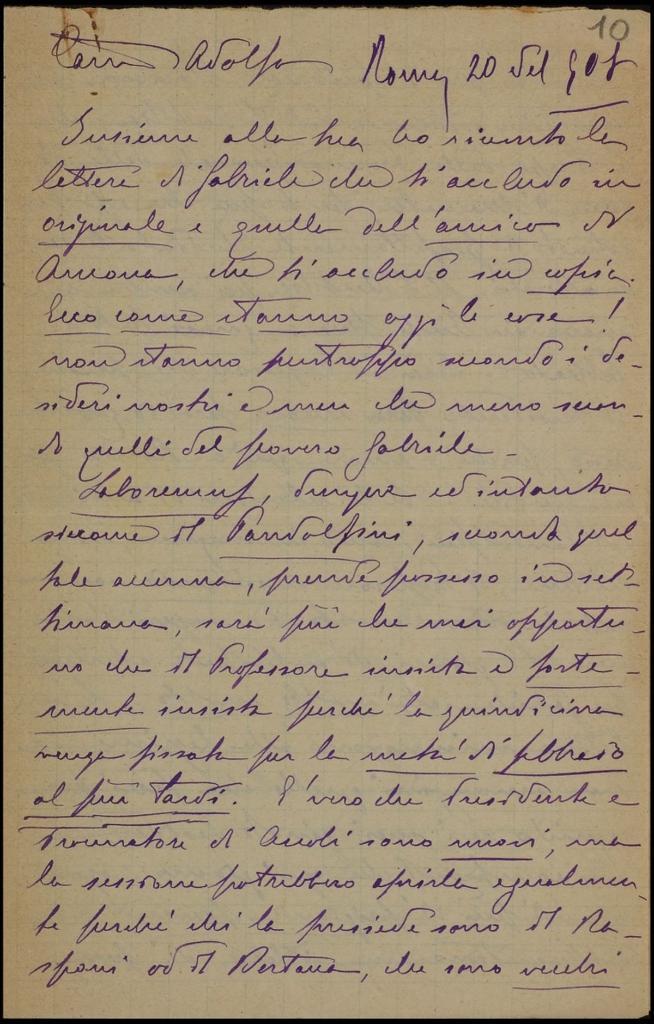 10
Caro Adolfo Roma, 20 del 905
Insieme alla tua ho ricevuto la
lettera di Gabriele che ti accludo in
originale e quella dell'amico di
Ancona, che ti accludo in copia.
Ecco come stanno oggi le cose!
non stanno purtroppo secondo i de-
sideri nostri e men che meno secon-
do quelli del povero Gabriele –
Laboremus, dunque ed intanto
siccome il Pandolfini, secondo quel
tale accenna, prende possesso in set-
timana, sarà più che mai opportu-
no che il Professore insista e forte-
mente insista perché la quindicina
venga fissata per la metà di febbraio
al più tardi. E' vero che Presidente e
Procuratore di Ascoli sono nuovi, ma
la sessione potrebbero aprirla egualmen-
te perché chi la presiede sono il Ra-
sponi od il Bertana, che sono vecchi